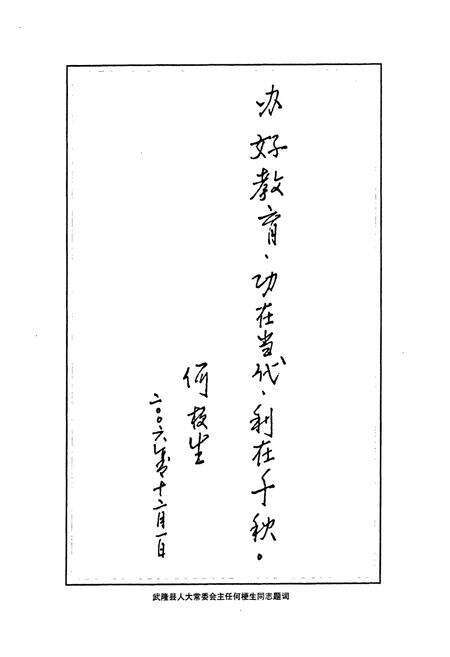 办好教育、功在当代、利在千秋。
何梗生
二〇〇六年十二月一日
武隆县人大常委会主任何梗生同志题词